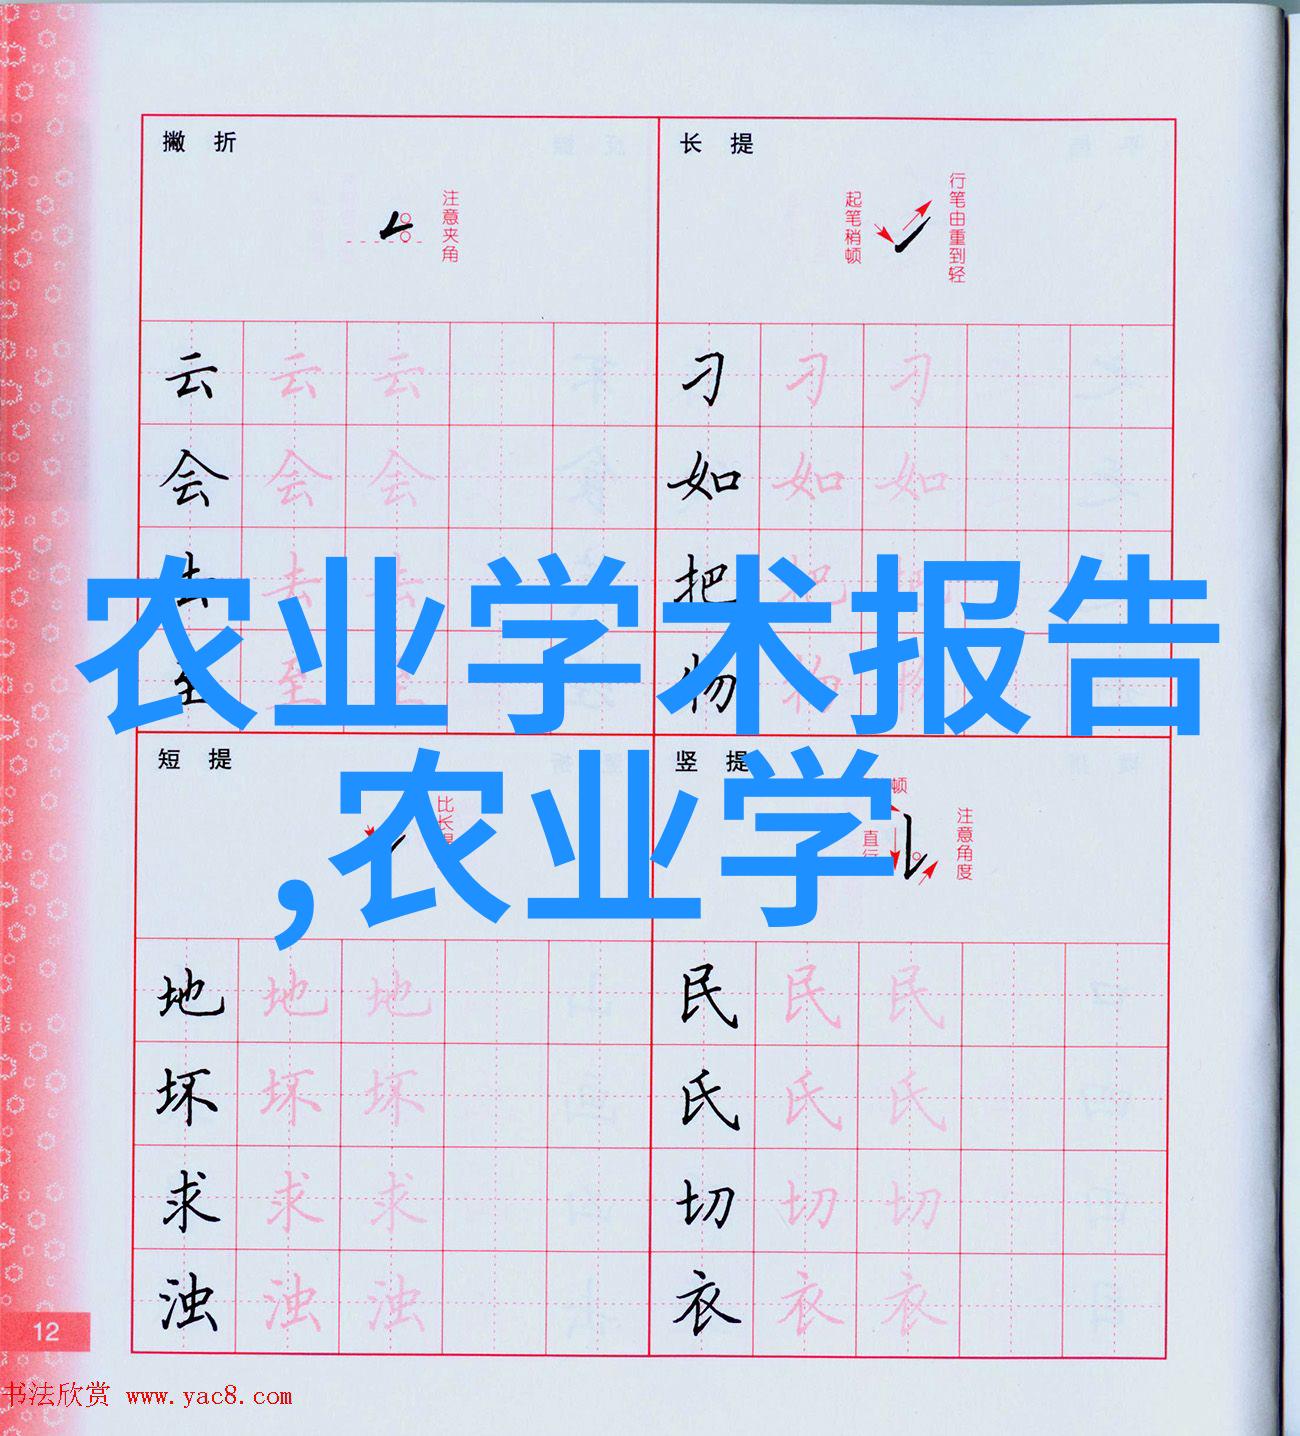 撇 折
注意夹角
云 云 云
会 会 会
去 去 去
至 至 至
长 提
起笔稍顿
行笔由重到轻
刁 刁 刁
如 如 如
把 把 把
物 物 物
农业学术报告
,农业学
短 提
比长
地 地 地
坏 坏 坏
求 求 求
浊 浊 浊
竖 提
顿
直行
注意角度
民 民 民
氏 氏 氏
切 切 切
衣 衣 衣
12
书法欣赏 www.yac8.com